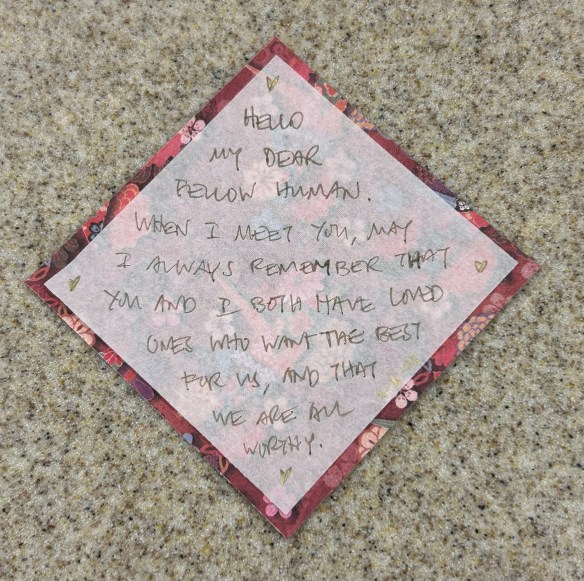 HELLO
MY DEAR
FELLOW HUMAN.
WHEN I MEET YOU, MAY
I ALWAYS REMEMBER THAT
YOU AND I BOTH HAVE LOVED
ONES WHO WANT THE BEST
FOR US, AND THAT
WE ARE ALL
WORTHY.